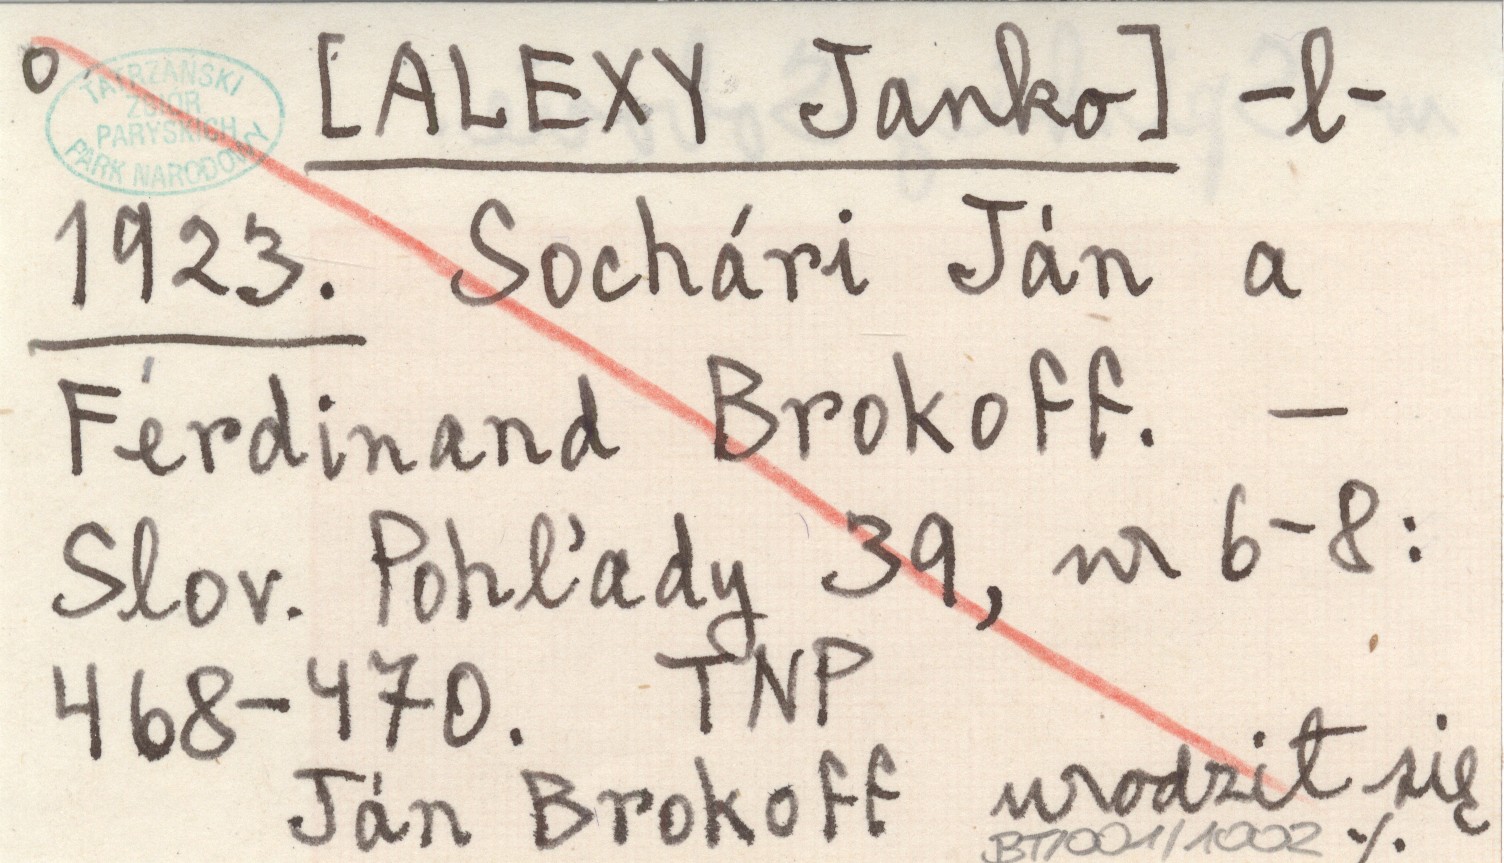 o
TATRZAŃSKI
ZBIÓR
PARYSKICH
PARK NARODOWY
[ALEXY Janko] -l-
1923. Sochári Ján a
Ferdinand Brokoff. —
Slov. Pohľady 39, nr 6-8:
468-470. TNP
Ján Brokoff urodził się
BT/001/1002 ·/.